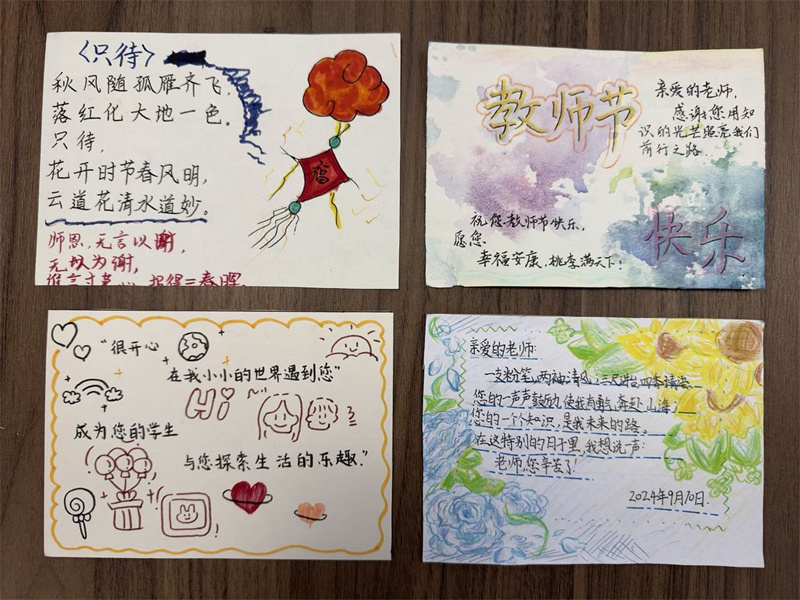 《只待》
秋风随孤雁齐飞，
落红化大地一色。
只待，
花开时节春风明，
云道花清水道妙。
师恩，无言以谢，
无以为谢，
谁言寸草心，报得三春晖
福
教师节
亲爱的老师，
感谢您用知
识的光芒照亮我们
前行之路.
祝您教师节快乐，
愿您
幸福安康，桃李满天下！
快乐
"很开心
在我小小的世界遇到您"
Hi
成为您的学生
与您探索生活的乐趣."
亲爱的老师:
一支粉笔，两袖清风，三尺讲台，四季讲谈
您的一声声鼓励，使我有勇气奔赴山海；
您的一个个知识，是我未来的路。
在这特别的日子里，我想说声:
老师，您辛苦了！
2024年9月10日.